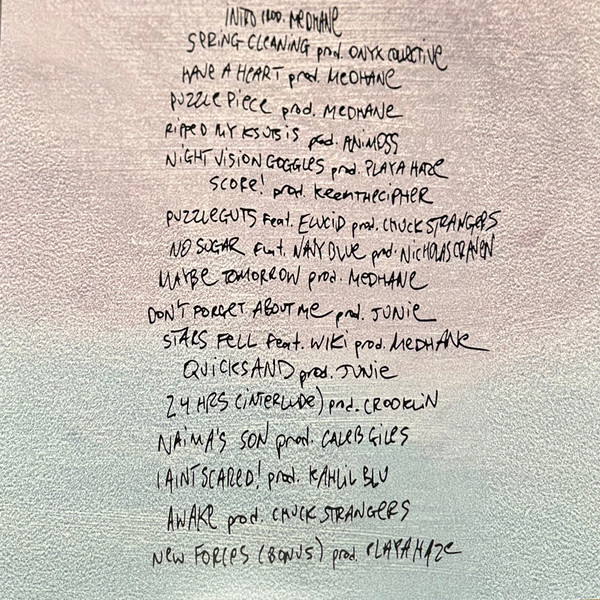 INTRO PROD. MEDHANE
SPRING CLEANING prod. ONYX COLLECTIVE
HAVE A HEART prod. MEDHANE
PUZZLE PIECE prod. MEDHANE
RIPPED MY KSUBIS prod. ANIMOSS
NIGHT VISION GOGGLES prod. PLAYA HAZE
SCORE! prod. KEEMTHECIPHER
PUZZLEGUTS feat. ELUCID prod. CHUCK STRANGERS
NO SUGAR feat. NAVY BLUE prod. NICHOLAS CRAVEN
MAYBE TOMORROW prod. MEDHANE
DON'T FORGET ABOUT ME prod. JUNIE
STARS FELL feat. WIKI prod. MEDHANE
QUICKSAND prod. JUNIE
24 HRS (INTERLUDE) prod. CROOKLIN
NAIMA'S SON prod. CALEB GILES
I AINT SCARED! prod. KAHLIL BLU
AWAKE prod. CHUCK STRANGERS
NEW FORCES (BONUS) prod. PLAYA HAZE